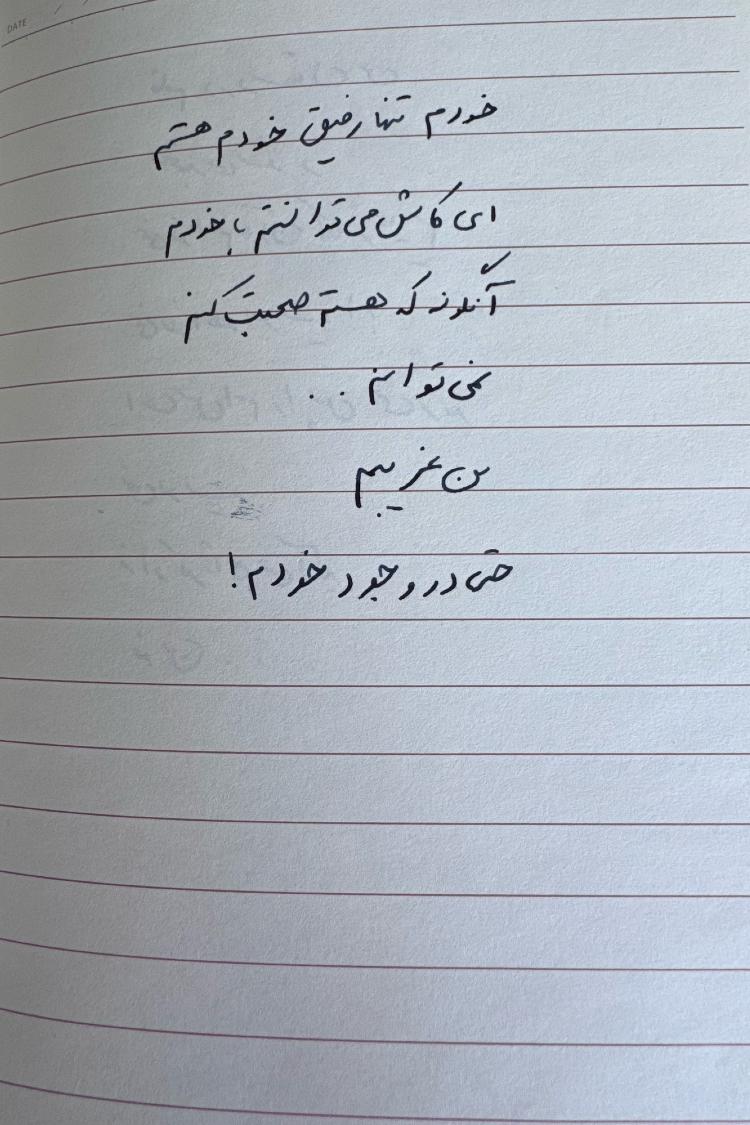 DATE
خودم تنها رفیق خودم هستم
ای کاش می توانستم با خودم
آنگونه که هستم صحبت کنم
نمی توانم . .
من غریبم
حتی در وجود خودم!